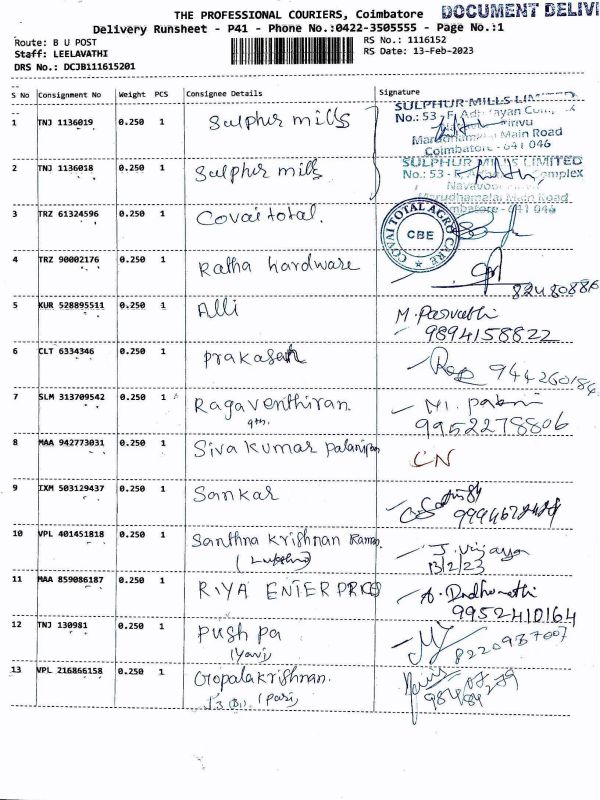 THE PROFESSIONAL COURIERS, Coimbatore
DOCUMENT DELIV
Delivery Runsheet - P41 - Phone No.:0422-3505555 - Page No.:1
Route: B U POST
RS No.: 1116152
Staff: LEELAVATHI
RS Date: 13-Feb-2023
DRS No.: DCJB111615201
S No Consignment No Weight PCS Consignee Details Signature
1 TNJ 1136019 0.250 1 Sulphur mills
SULPHUR MILLS LIMITED
No.: 53 - F,
Main Road
Coimbatore - 641 046
2 TNJ 1136018 0.250 1 Sulphur mills
SULPHUR MILLS LIMITED
No.: 53 - F, Complex
Marudhamalai Main Road
Coimbatore - 641 046
3 TRZ 61324596 0.250 1 Covai total.
COVAI TOTAL AGRO CARE
CBE
4 TRZ 90002176 0.250 1 Ratha hardware
5 KUR 528895511 0.250 1 Alli M. Parvathi
9894158822
6 CLT 6334346 0.250 1 Prakash 944260184
7 SLM 313709542 0.250 1 Ragaventhiran
9952278806
8 MAA 942773031 0.250 1 Siva kumar Palanipan CN
9 IXM 503129437 0.250 1 Sankar
10 VPL 401451818 0.250 1 Santhna Krishnan Raman J. Vijaya
13/2/23
11 MAA 859086187 0.250 1 RIYA ENTERPRICS
9952410164
12 TNJ 130981 0.250 1 Pushpa
8220987007
13 VPL 216866158 0.250 1 Gopalakrishnan.